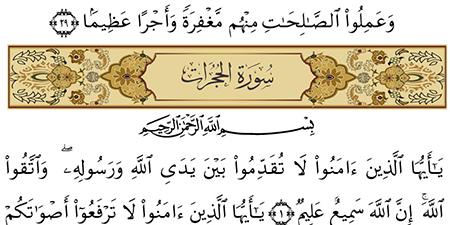 وَعَمِلُوا۟ ٱلصَّـٰلِحَـٰتِ مِنْهُم مَّغْفِرَةً وَأَجْرًا عَظِيمًۢا ﴿٢٩﴾
سُورَةُ الحُجُرَاتِ
بِسْمِ ٱللَّهِ ٱلرَّحْمَـٰنِ ٱلرَّحِيمِ
يَـٰٓأَيُّهَا ٱلَّذِينَ ءَامَنُوا۟ لَا تُقَدِّمُوا۟ بَيْنَ يَدَىِ ٱللَّهِ وَرَسُولِهِۦ ۖ وَٱتَّقُوا۟
ٱللَّهَ ۚ إِنَّ ٱللَّهَ سَمِيعٌ عَلِيمٌ ﴿١﴾ يَـٰٓأَيُّهَا ٱلَّذِينَ ءَامَنُوا۟ لَا تَرْفَعُوٓا۟ أَصْوَٰتَكُمْ